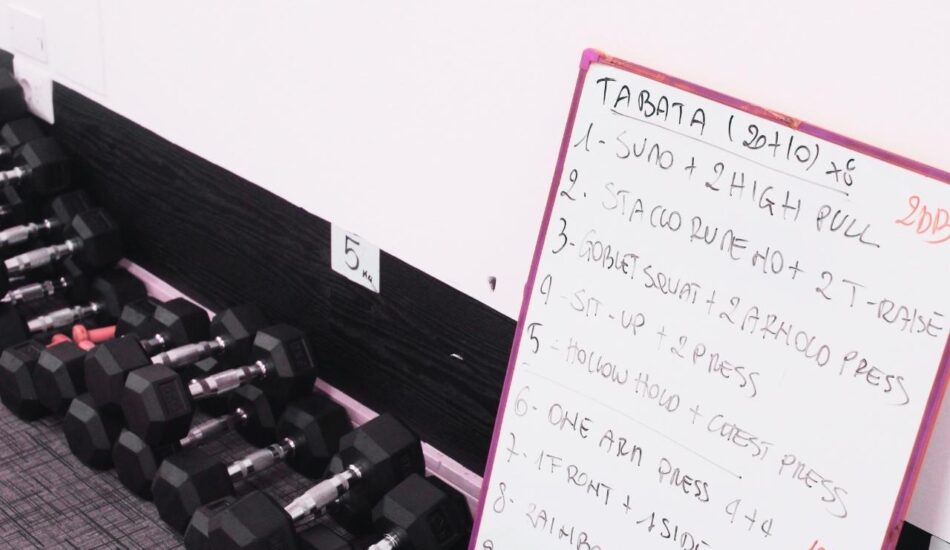 TABATA (20+10) x8
1- SUMO + 2 HIGH PULL
2DB
2. STACCO RUMENO + 2 T-RAISE
3- GOBLET SQUAT + 2 ARNOLD PRESS
4- SIT-UP + 2 PRESS
5- HOLLOW HOLD + CHEST PRESS
6- ONE ARM PRESS 4+4
7- 1 FRONT + 1 SIDE
8-
5 KG